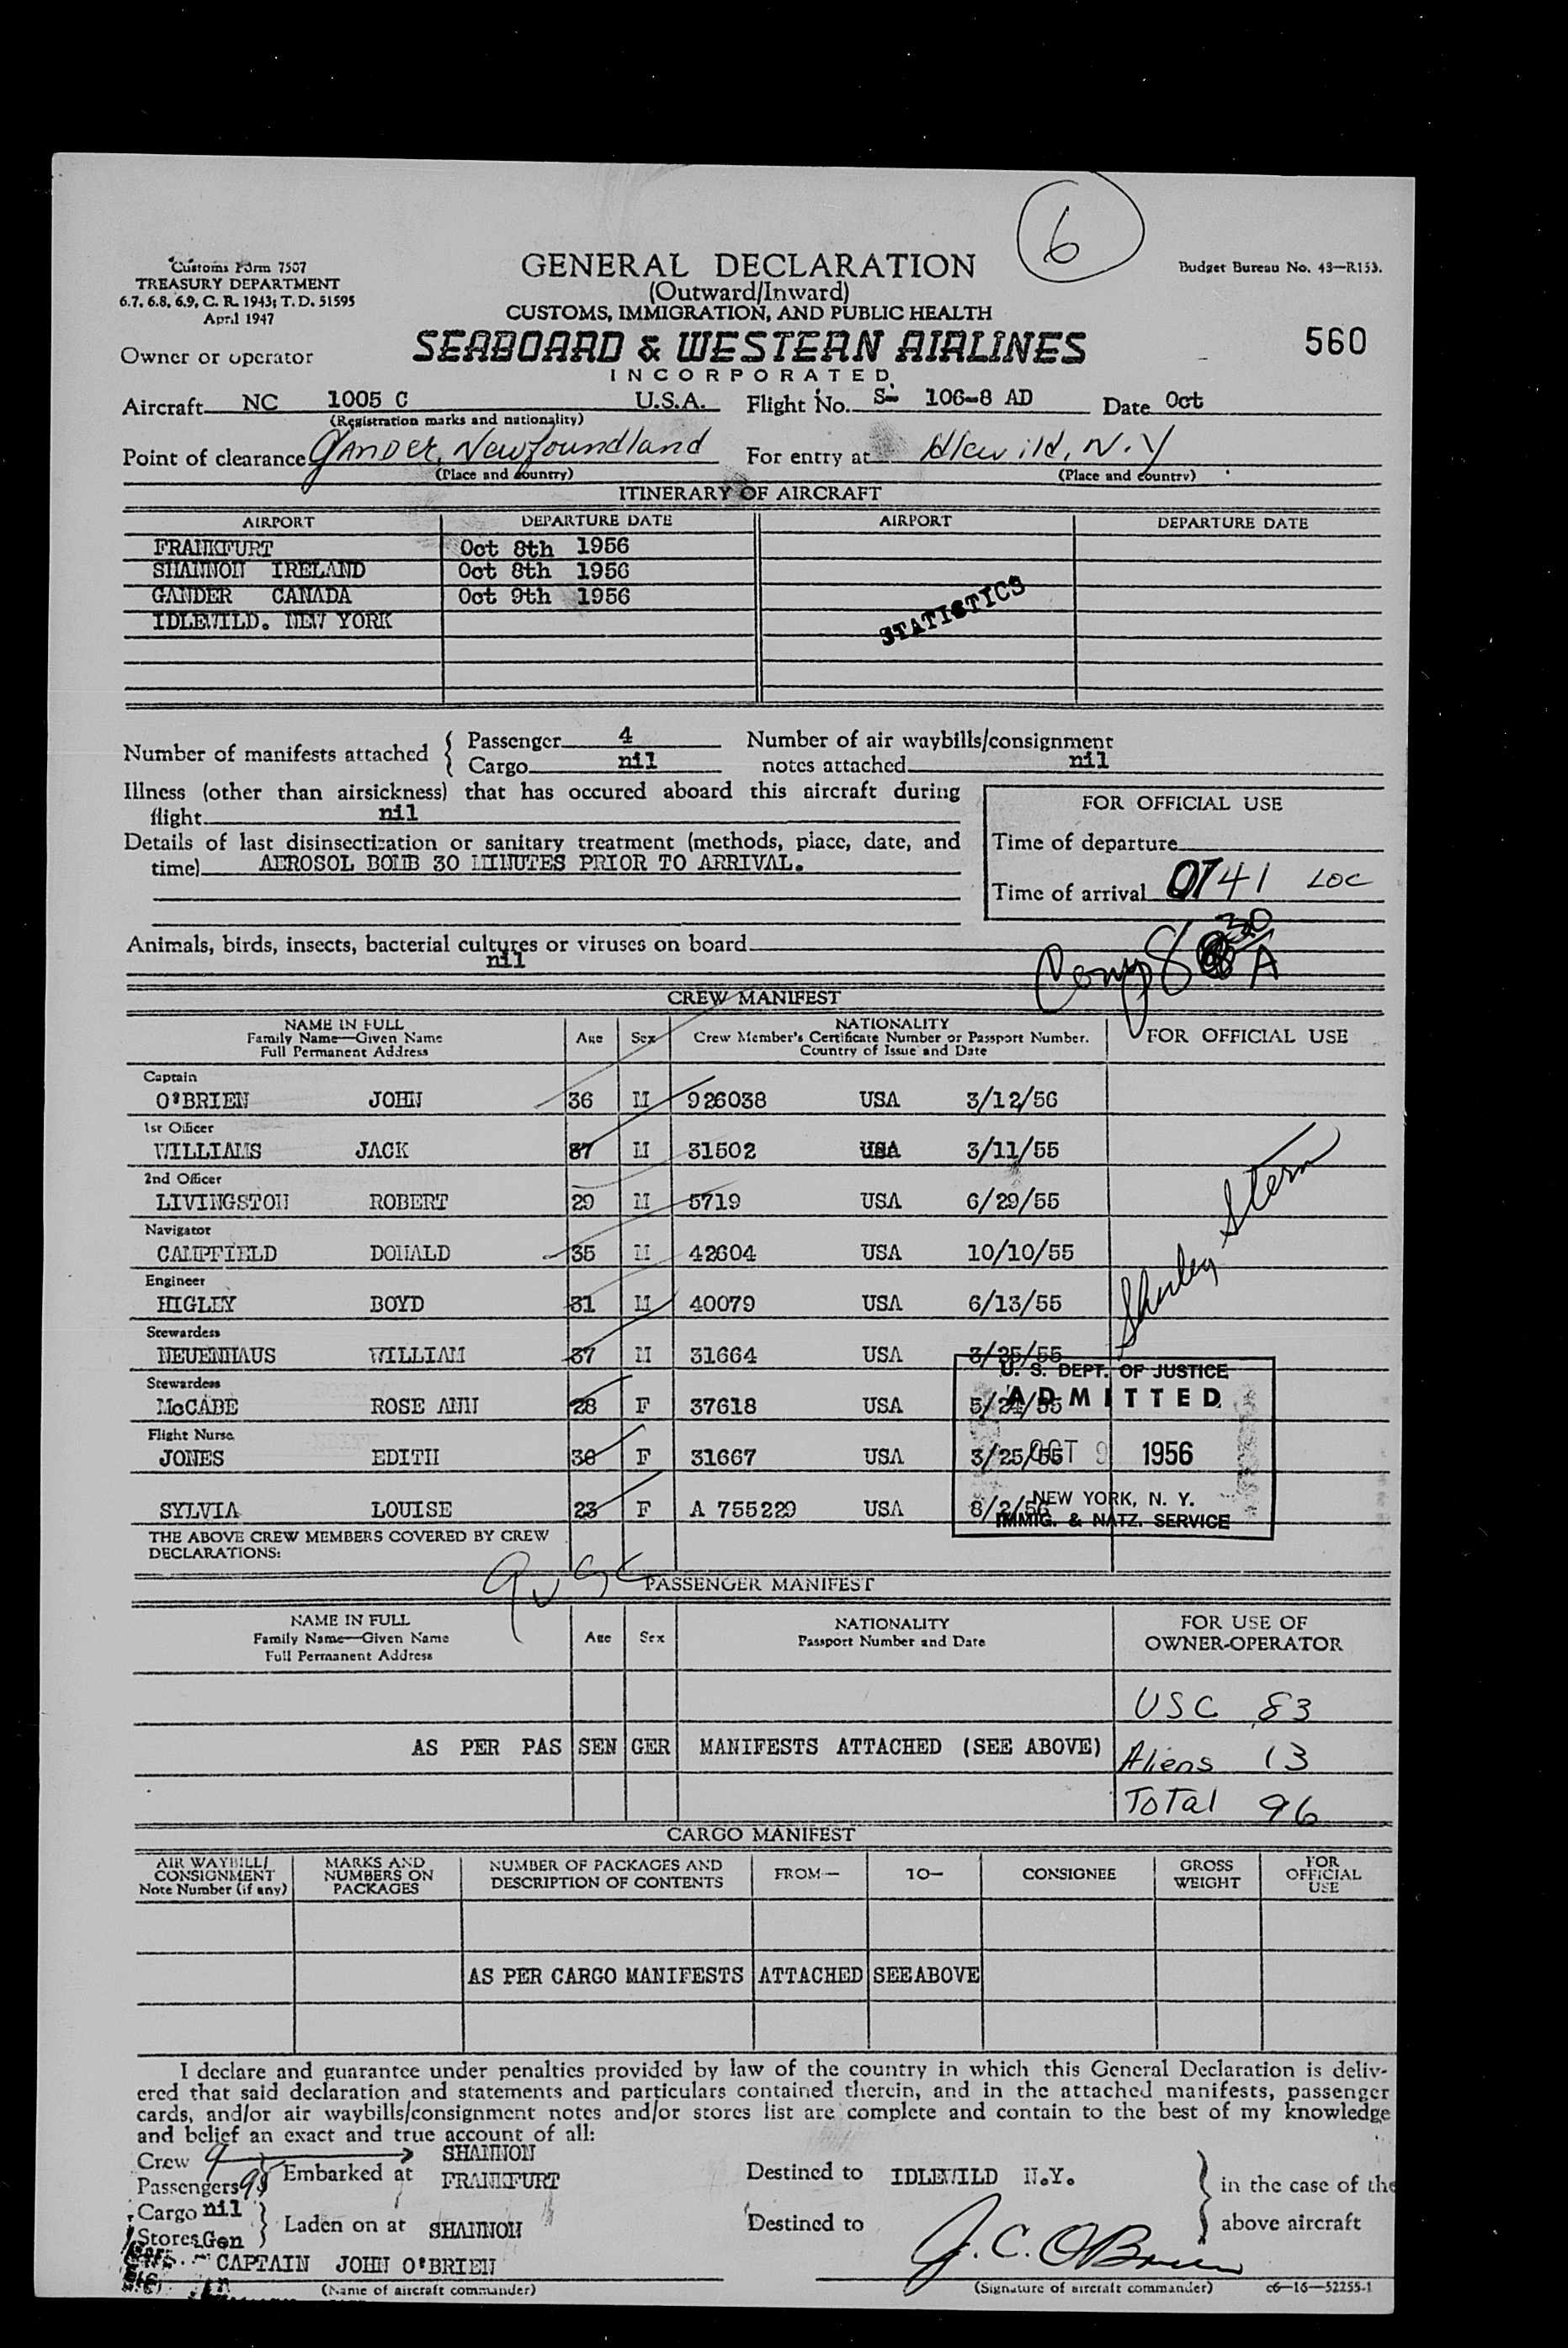 6
Customs Form 7507
TREASURY DEPARTMENT
6.7, 6.8, 6.9, C. R. 1943; T. D. 51595
April 1947
GENERAL DECLARATION
(Outward/Inward)
CUSTOMS, IMMIGRATION, AND PUBLIC HEALTH
Budget Bureau No. 43—R153.
Owner or operator
SEABOARD & WESTERN AIRLINES
INCORPORATED
560
Aircraft NC 1005 C U.S.A. Flight No. S- 106-8 AD Date Oct
(Registration marks and nationality)
Point of clearance Gander, Newfoundland For entry at Idlewild, N.Y
(Place and country) (Place and country)
ITINERARY OF AIRCRAFT
AIRPORT DEPARTURE DATE AIRPORT DEPARTURE DATE
FRANKFURT Oct 8th 1956
SHANNON IRELAND Oct 8th 1956
GANDER CANADA Oct 9th 1956
STATISTICS
IDLEWILD. NEW YORK
Number of manifests attached Passenger 4 Number of air waybills/consignment
Cargo nil notes attached nil
Illness (other than airsickness) that has occured aboard this aircraft during
flight nil
FOR OFFICIAL USE
Details of last disinsectization or sanitary treatment (methods, place, date, and
time) AEROSOL BOMB 30 MINUTES PRIOR TO ARRIVAL.
Time of departure
Time of arrival 0741 LOC
Animals, birds, insects, bacterial cultures or viruses on board
nil
30
A
CREW MANIFEST
NAME IN FULL
Family Name—Given Name
Full Permanent Address
Age
Sex
NATIONALITY
Crew Member's Certificate Number or Passport Number.
Country of Issue and Date
FOR OFFICIAL USE
Captain
O'BRIEN JOHN 36 M 926038 USA 3/12/56
1st Officer
WILLIAMS JACK 37 M 31502 USA 3/11/55
2nd Officer
LIVINGSTON ROBERT 29 M 5719 USA 6/29/55
Navigator
CAMPFIELD DONALD 35 M 42604 USA 10/10/55
Engineer
HIGLEY BOYD 31 M 40079 USA 6/13/55
Shirley Stern
Stewardess
NEUENHAUS WILLIAM 37 M 31664 USA 3/25/55
Stewardess
McCABE ROSE ANN 28 F 37618 USA 5/24/55
Flight Nurse
JONES EDITH 30 F 31667 USA 3/25/55
SYLVIA LOUISE 23 F A 755229 USA 8/2/56
U. S. DEPT. OF JUSTICE
ADMITTED
OCT 9 1956
NEW YORK, N. Y.
IMMIG. & NATZ. SERVICE
THE ABOVE CREW MEMBERS COVERED BY CREW
DECLARATIONS:
9 USC
PASSENGER MANIFEST
NAME IN FULL
Family Name—Given Name
Full Permanent Address
Age
Sex
NATIONALITY
Passport Number and Date
FOR USE OF
OWNER-OPERATOR
USC 83
AS PER PAS SEN GER MANIFESTS ATTACHED (SEE ABOVE)
Aliens 13
Total 96
CARGO MANIFEST
AIR WAYBILL/
CONSIGNMENT
Note Number (if any)
MARKS AND
NUMBERS ON
PACKAGES
NUMBER OF PACKAGES AND
DESCRIPTION OF CONTENTS
FROM—
TO—
CONSIGNEE
GROSS
WEIGHT
FOR
OFFICIAL
USE
AS PER CARGO MANIFESTS ATTACHED SEEABOVE
I declare and guarantee under penalties provided by law of the country in which this General Declaration is deliv-
ered that said declaration and statements and particulars contained therein, and in the attached manifests, passenger
cards, and/or air waybills/consignment notes and/or stores list are complete and contain to the best of my knowledge
and belief an exact and true account of all:
Crew 9 SHANNON
Passengers Embarked at FRANKFURT Destined to IDLEWILD N.Y. in the case of the
Cargo nil
Stores Gen Laden on at SHANNON Destined to above aircraft
CAPTAIN JOHN O'BRIEN J. C. O'Brien
(Name of aircraft commander) (Signature of aircraft commander) c6—16—52255-1